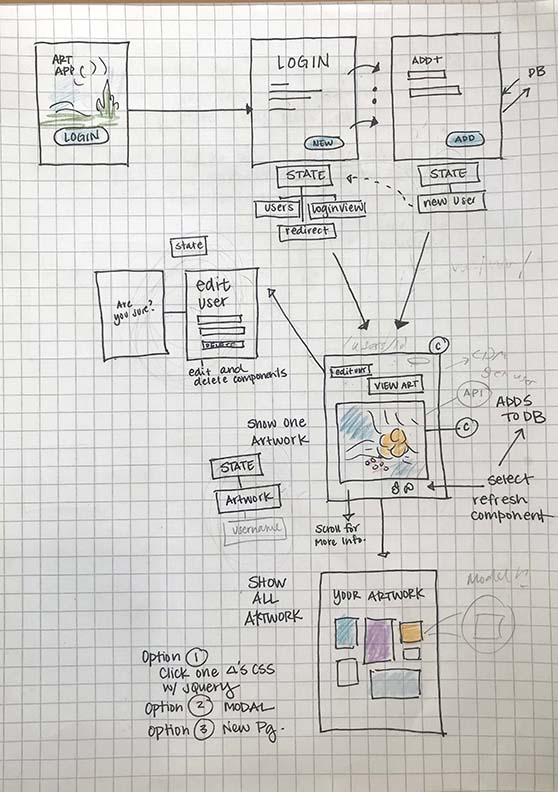 ART
APP
LOGIN
LOGIN
NEW
ADD+
ADD
DB
STATE
users
loginview
redirect
STATE
new User
state
Are
you sure?
edit
user
DELETE
edit and
delete components
/users/id
C
edit user
VIEW ART
API
C
ADDS
TO DB
Show one
Artwork
STATE
Artwork
username
select
refresh
component
Scroll for
More Info.
SHOW
ALL
ARTWORK
YOUR ARTWORK
Option 1
Click one Δ's CSS
w/ jQuery
Option 2 MODAL
Option 3 New Pg.